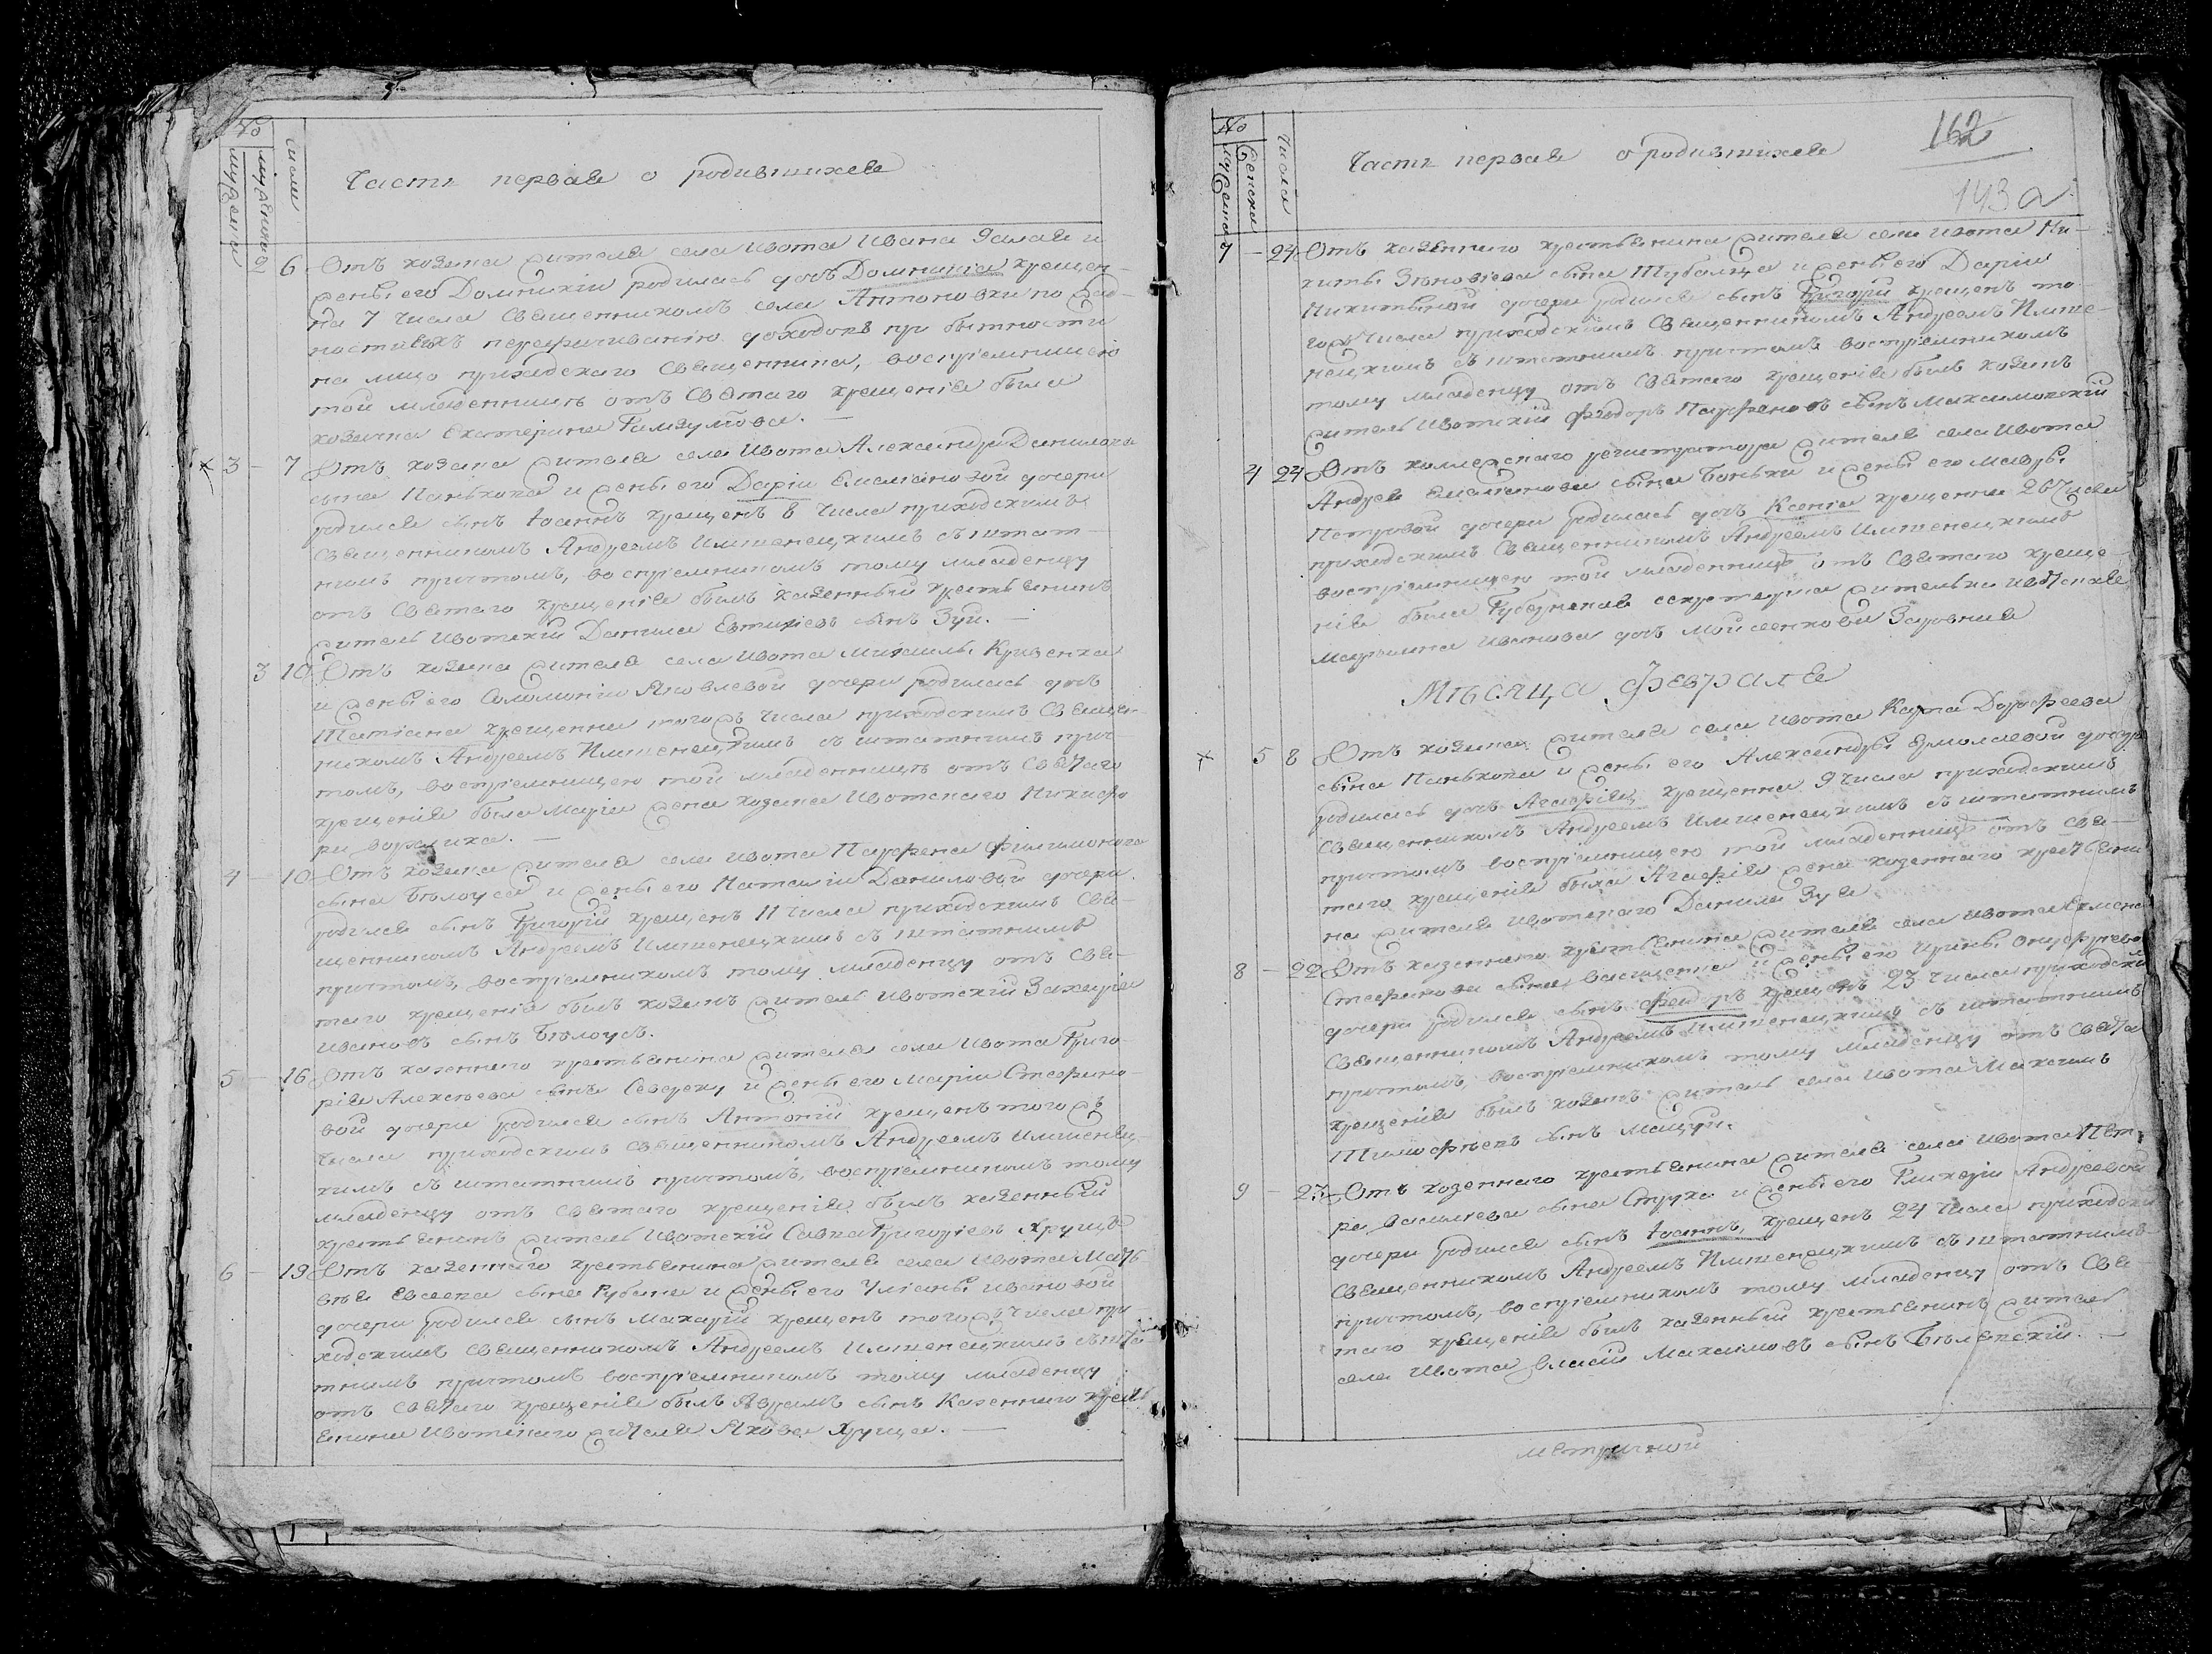 №
мужеска
женска
числа
Часть первая о родившихся
6 Отъ козака жителя села Ивота Ивана Галая и
жены его Домникіи родилась дочь Домникія крещен-
на 7 числа Священникомъ села Антоновки по
перекрикиванію доходовъ при бытности
на лицо приходского Священника, воспріемницею
той младенницѣ отъ Святаго крещенія была
козачка Екатерина
3 - 7 Отъ козака жителя села Ивота Александра Данилова
сына Панькока и жены его Даріи Емеліановой дочери
родился сынъ Іоаннъ крещенъ 8 числа приходскимъ
Священникомъ Андреемъ Имшенецкимъ съ штат-
нимъ причтомъ, воспріемникомъ тому младенцу
отъ Святаго крещенія былъ казенный крестьянинъ
житель Ивотскій Данила Евтихіевъ сынъ Зуй. —
3 10 Отъ козака жителя села Ивота Михаила Кривенка
и жены его Соломоніи Яковлевой дочери родилась дочь
Татіана крещенна того жъ числа приходскимъ Священ-
никомъ Андреемъ Имшенецкимъ съ штатнимъ прич-
томъ, воспріемницею той младенницѣ отъ Святаго
крещенія была Марія жена козака Ивотскаго Никифо
ра —
4 - 10 Отъ козака жителя села Ивота Парфена Филимонова
сына Бѣлоуса и жены его Наталіи Даниловой дочери
родился сынъ Григорій крещенъ 11 числа приходскимъ Свя-
щенникомъ Андреемъ Имшенецкимъ съ штатнимъ
причтомъ, воспріемникомъ тому младенцу отъ Свя-
таго крещенія былъ козакъ житель Ивотскій Захарія
Ивановъ сынъ Бѣлоусъ.
5 - 16 Отъ казенного крестьянина жителя села Ивота Григо-
рія Алексѣева сына и жены его Маріи Стефано-
вой дочери родился сынъ Антоній крещенъ того жъ
числа приходскимъ Священникомъ Андреемъ Имшенец-
кимъ съ штатнимъ причтомъ, воспріемникомъ тому
младенцу отъ Святаго крещенія былъ казенный
крестьянинъ житель Ивотскій Савка Григоріевъ Хрущъ
6 - 19 Отъ казенного крестьянина жителя села Ивота Мать
вѣя сына Губаря и жены его Уліаны Ивановой
дочери родился сынъ Макарій крещенъ того жъ числа при-
ходскимъ Священникомъ Андреемъ Имшенецкимъ съ шта
тнимъ причтомъ воспріемникомъ тому младенцу
отъ Святаго крещенія былъ сынъ Казенного крест
янина Ивотского жителя Якова Хруща. —
№
мужеска
женска
Числа
Часть первая о родившихся
162
143 а
7 - 24 Отъ казенного крестьянина жителя села Ивота Ни-
киты Зѣновіева сына Тубольца и жены его Даріи
Никитиной дочери родился сынъ Григорій крещенъ то-
гожъ числа приходскимъ Священникомъ Андреемъ Имше-
нецкимъ съ штатнимъ причтомъ воспріемникомъ
тому младенцу отъ Святаго крещенія былъ козакъ
житель Ивотскій Федоръ Парфеновъ сынъ Максимовскій
4 24 Отъ коллежского регистратора жителя села Ивота
Андрея Емеліянова сына Баньки и жены его Мавры
Петровой дочери родилась дочь Ксенія крещенна 26 числа
приходскимъ Священникомъ Андреемъ Имшенецкимъ
воспріемницею той младенницѣ отъ Святаго креще-
нія была Губернская секретарша жителька Ивотская
Марфа Иванова дочь
Мѣсяца Февраля
5 8 Отъ козака жителя села Ивота Карпа Дорофеева
сына Панькока и жены его Александры Ермолаевой дочер
родилась дочь Агафія крещенна 9 числа приходскимъ
Священникомъ Андреемъ Имшенецкимъ съ штатнимъ
причтомъ воспріемницею той младенницѣ отъ Свя-
таго крещенія была Агафія жена казенного крестьяни
на жителя Ивотского Данила Зуя
8 - 22 Отъ казенного крестьянина жителя села Ивота
Стефанова сына и жены его Ирины Онуфріевой
дочери родился сынъ Феодоръ крещенъ 23 числа приходским
Священникомъ Андреемъ Имшенецкимъ съ штатнимъ
причтомъ, воспріемникомъ тому младенцу отъ Свята
крещенія былъ козакъ житель села Ивота Максимъ
Тимофѣевъ сынъ Мацуй.
9 - 23 Отъ казенного крестьянина жителя села Ивота Пет-
ра Василіева сына Струка и жены его Гликеріи Андреевой
дочери родился сынъ Іоаннъ крещенъ 24 числа приходски
Священникомъ Андреемъ Имшенецкимъ съ штатнимъ
причтомъ, воспріемникомъ тому младенцу отъ Свя-
таго крещенія былъ казенный крестьянинъ житель
села Ивота Власій Максимовъ сынъ —
метричной